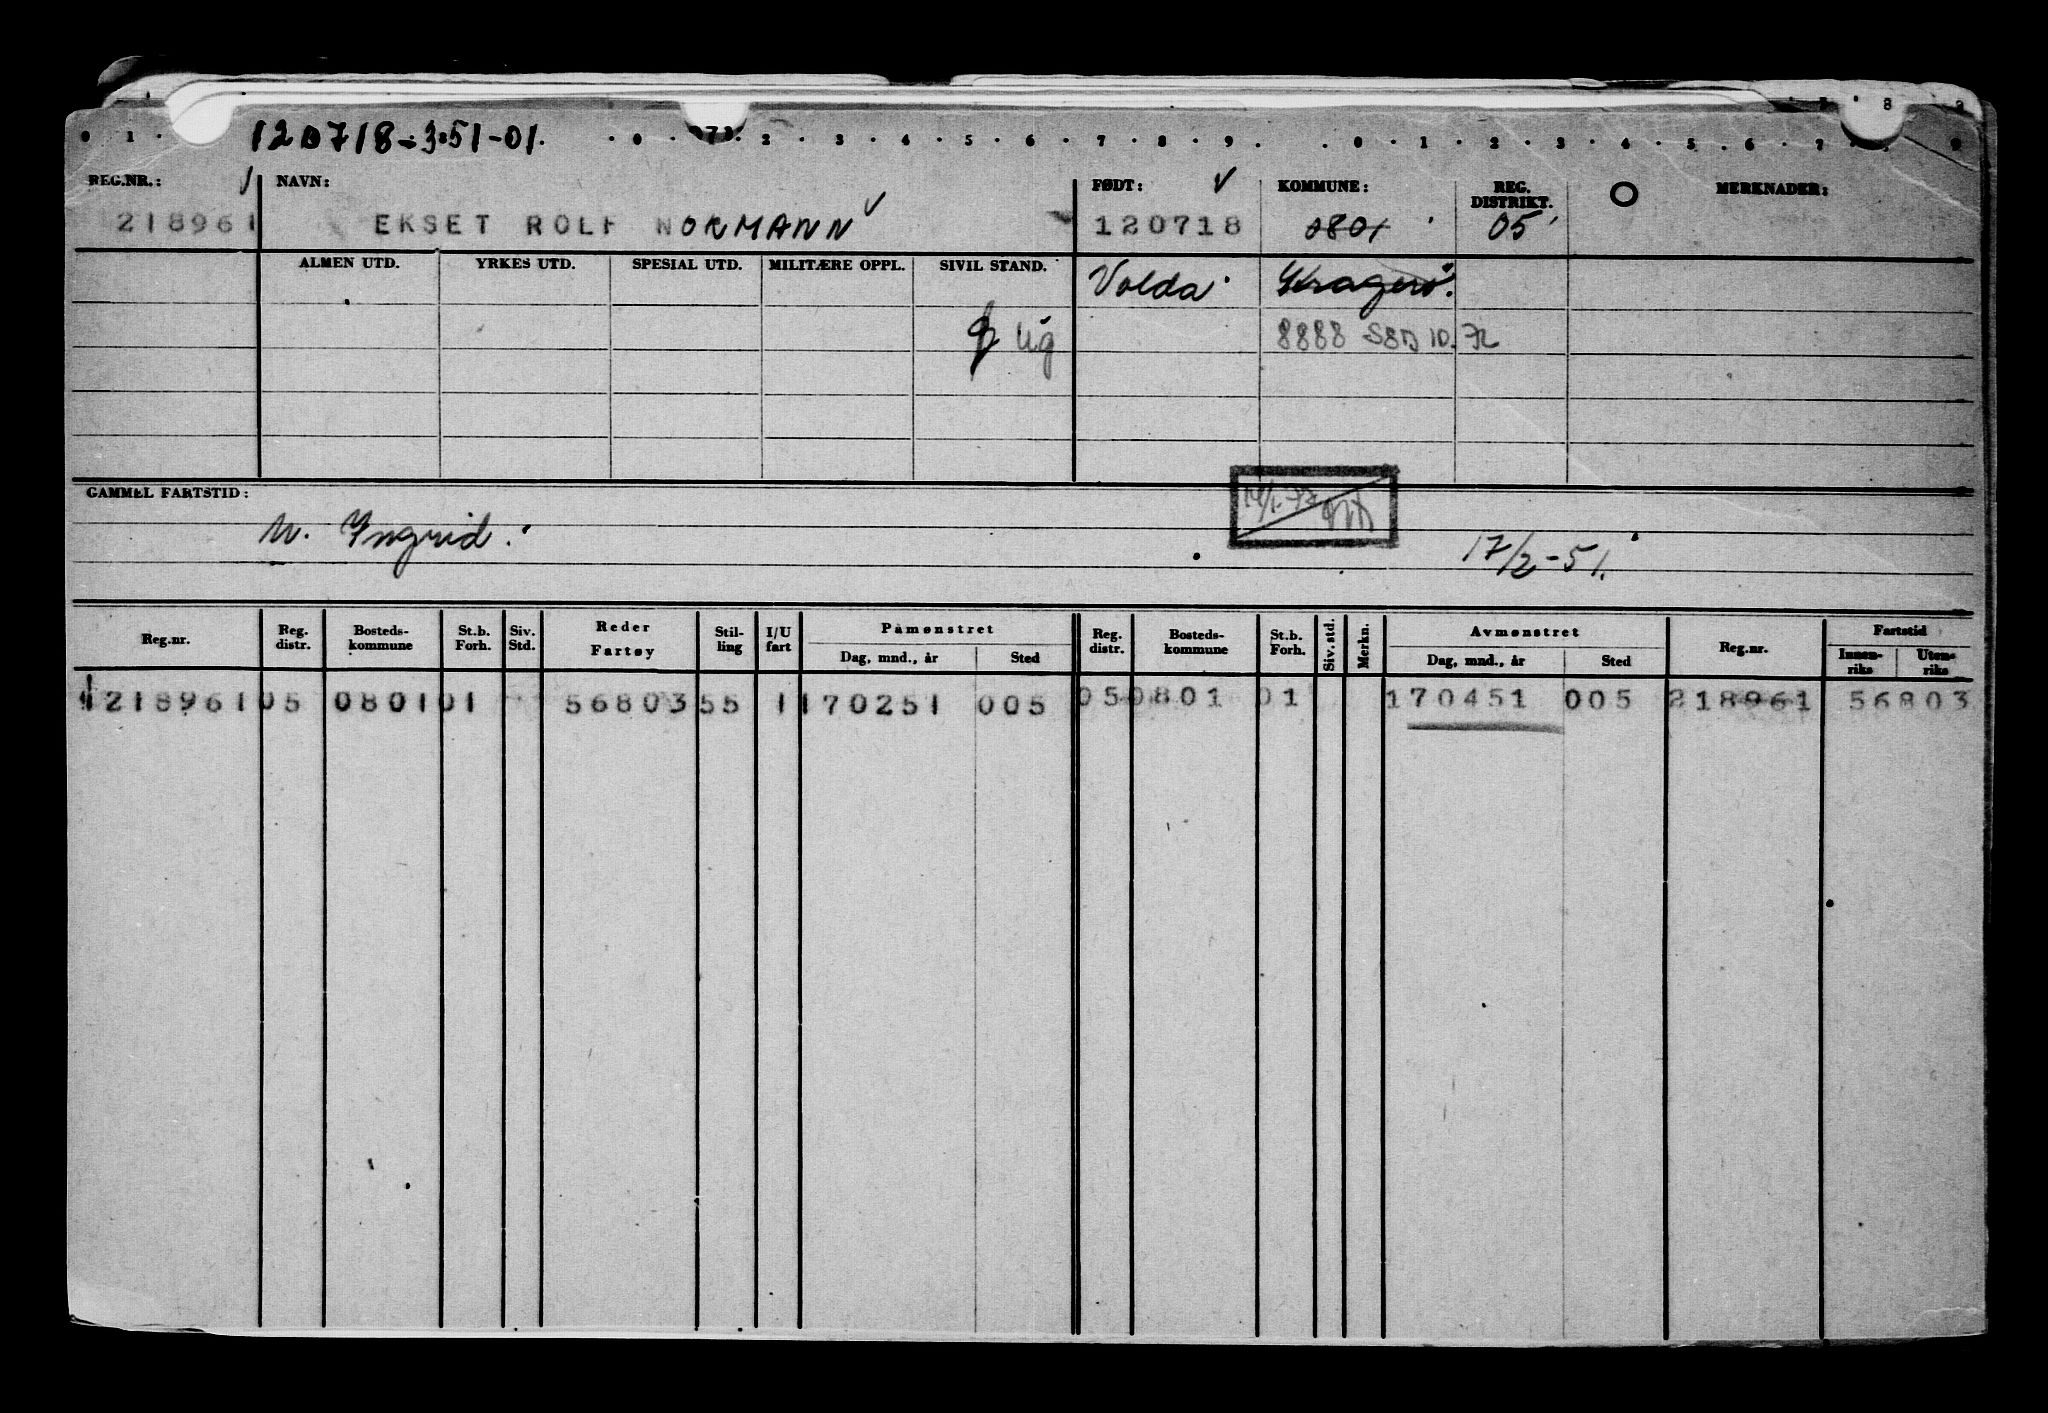 120718-351-01.
REG.NR.: NAVN: FØDT: KOMMUNE: REG. DISTRIKT. MERKNADER:
218961 EKSET ROLF NORMANN 120718 0801 05
ALMEN UTD. YRKES UTD. SPESIAL UTD. MILITÆRE OPPL. SIVIL STAND. Volda Kragerö.
ug 8888
GAMMEL FARTSTID:
M. Ingrid.
17/2-51.
Reg.nr. Reg. distr. Bosteds-kommune St.b. Forh. Siv. Std. Reder Fartøy Stil-ling I/U fart Påmønstret Dag, mnd., år Sted Reg. distr. Bosteds-kommune St.b. Forh. Siv. std. Merkn. Avmønstret Dag, mnd., år Sted Reg.nr. Fartstid Innen-riks Uten-riks
218961 05 0801 01 56803 55 1 170251 005 05 0801 01 170451 005 218961 56803